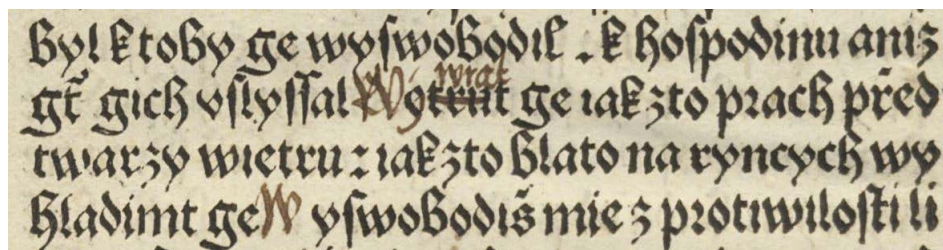 byl ktoby ge wyſwobodil . k hoſpodinu aniz
gt̃ gich vſlyſſal ge iakzto prach před
twarzy wietru : iakzto blato na ryncych wy
hladimt ge W yſwobodiš mie z protiwiloſti li